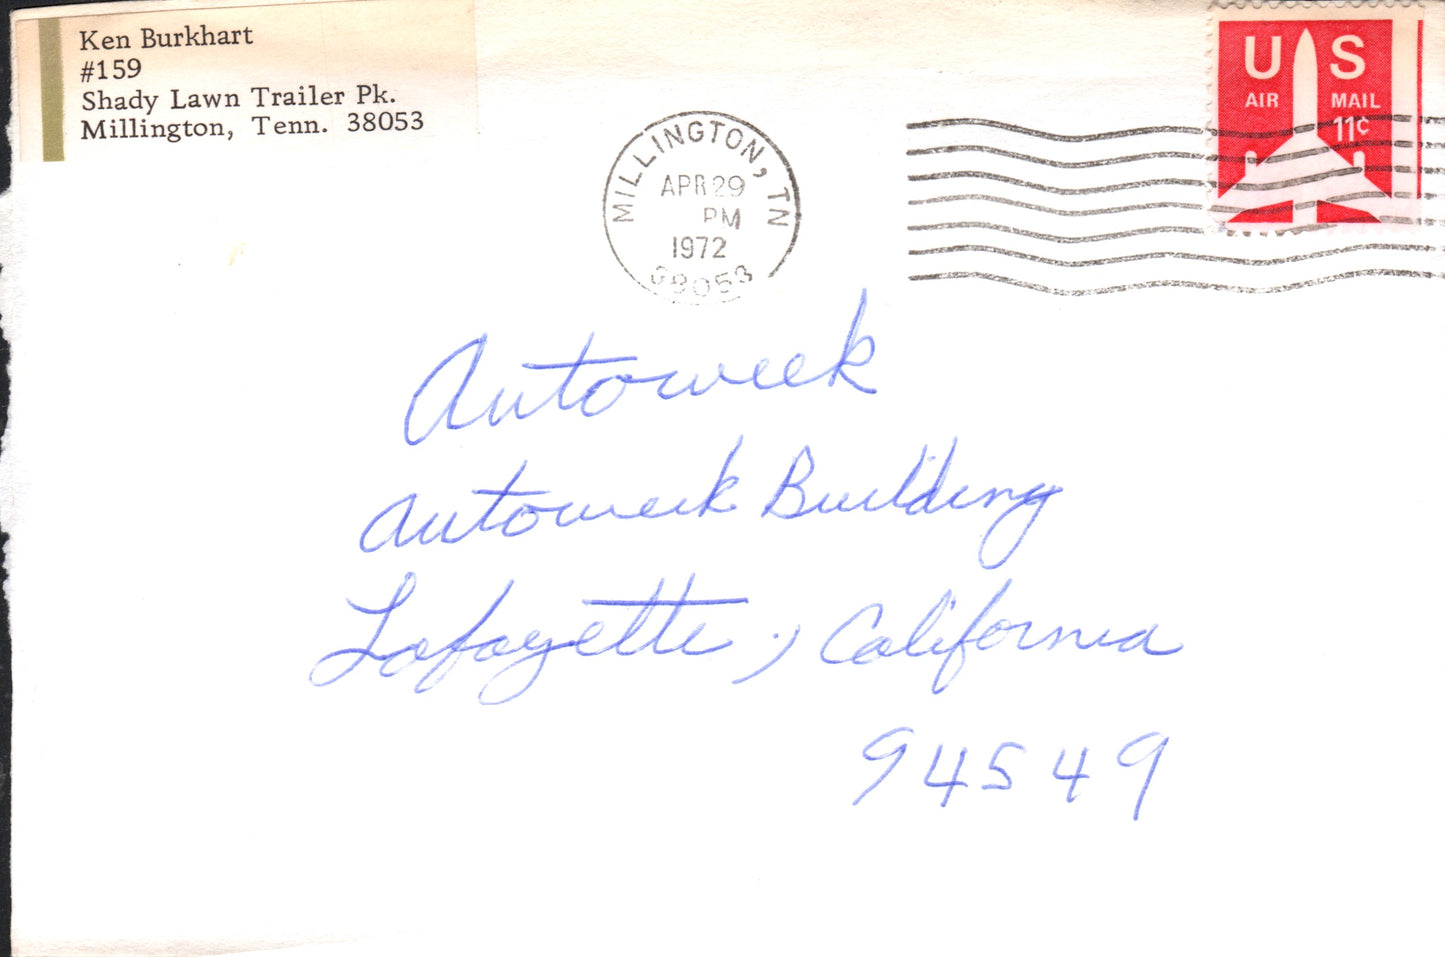 Ken Burkhart
#159
Shady Lawn Trailer Pk.
Millington, Tenn. 38053
MILLINGTON, TN
APR 29
PM
1972
38053
U S
AIR MAIL
11¢
Autoweek
Autoweek Building
Lafayette, California
94549